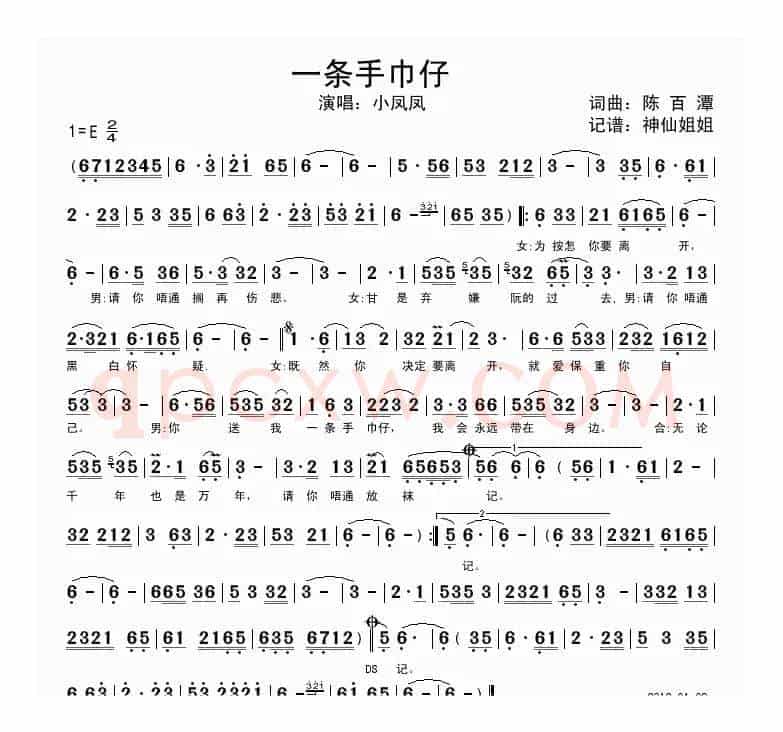 一条手巾仔
演唱：小凤凤
词曲：陈 百 潭
记谱：神仙姐姐
1=E 2/4
(6712345 | 6 · 3 | 21 65 | 6 - | 6 - | 5 · 56 | 53 212 | 3 - | 3 35 | 6 · 61 |
2 · 23 | 5 3 35 | 6 63 | 2 · 23 | 53 21 | 6 - 321 | 65 35 ) ‖: 6 33 | 21 6165 | 6 - |
女:为 按怎 你要 离 开,
6 - | 6 · 5 36 | 5 · 3 32 | 3 - | 3 - | 2 · 1 | 535 535 | 32 65 | 3 3 | 3 · 2 13 |
男:请 你 唔通 搁 再 伤 悲, 女:甘 是 弃 嫌 阮的 过 去, 男:请 你 唔通
2·321 6·165 | 6 - | 6 - | 1 · 6 | 3 3 | 32 21 | 2 3 · | 6·6 533 | 232 1612 |
黑 白怀 疑. 女:既 然 你 决定 要离 开, 就 爱保 重你 自
53 3 | 3 - | 6 · 56 | 535 32 | 1 6 3 | 223 2 | 3 · 66 | 535 32 | 3 - | 2 · 1 |
己. 男:你 送 我 一 条 手 巾仔, 我 会 永远 带在 身 边. 合:无 论
535 535 | 2·1 65 | 3 - | 3·2 13 | 21 65653 | 56 6 | 6 ( 56 | 1 · 61 |
千 年 也 是 万 年, 请 你 唔通 放 袜 记.
1
32 212 | 3 63 | 2 · 23 | 53 21 | 6 - | 6 - ) :‖ 5 6 · | 6 - | (6 33 | 2321 6165 |
2
记.
6 - | 6 - | 665 36 | 5 3 32 | 3 - | 3 - | 2 · 1 | 535 3 | 2321 65 | 3 - | 332 13 |
2321 65 | 61 2165 | 635 6712 ) ‖ 5 6 · | 6 ( 35 | 6 · 61 | 2 · 23 | 5 3 35 |
DS 记.
6 63 | 2 · 23 | 53 21 | 6 - 321 | 6 - | 6 - | 6 - ) ‖
qpcxw.COM